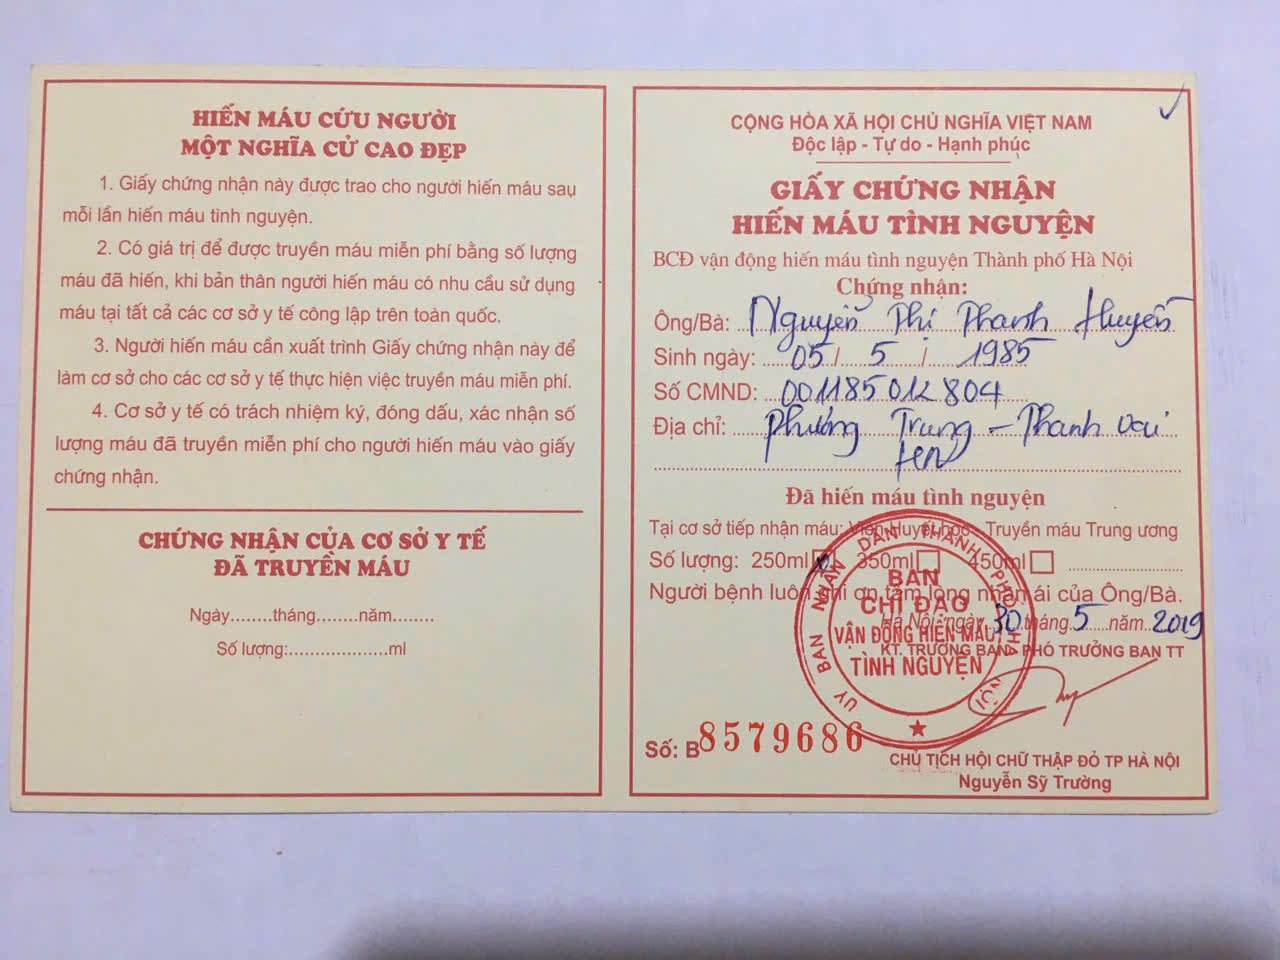 HIẾN MÁU CỨU NGƯỜI
MỘT NGHĨA CỬ CAO ĐẸP
1. Giấy chứng nhận này được trao cho người hiến máu sau
mỗi lần hiến máu tình nguyện.
2. Có giá trị để được truyền máu miễn phí bằng số lượng
máu đã hiến, khi bản thân người hiến máu có nhu cầu sử dụng
máu tại tất cả các cơ sở y tế công lập trên toàn quốc.
3. Người hiến máu cần xuất trình Giấy chứng nhận này để
làm cơ sở cho các cơ sở y tế thực hiện việc truyền máu miễn phí.
4. Cơ sở y tế có trách nhiệm ký, đóng dấu, xác nhận số
lượng máu đã truyền miễn phí cho người hiến máu vào giấy
chứng nhận.
CHỨNG NHẬN CỦA CƠ SỞ Y TẾ
ĐÃ TRUYỀN MÁU
Ngày........tháng........năm........
Số lượng:...................ml
CỘNG HÒA XÃ HỘI CHỦ NGHĨA VIỆT NAM
Độc lập - Tự do - Hạnh phúc
GIẤY CHỨNG NHẬN
HIẾN MÁU TÌNH NGUYỆN
BCĐ vận động hiến máu tình nguyện Thành phố Hà Nội
Chứng nhận:
Ông/Bà: Nguyễn Thị Thanh Huyền
Sinh ngày: 05 / 5 / 1985
Số CMND: 001185012804
Địa chỉ: Phương Trung - Thanh Oai
Đã hiến máu tình nguyện
Tại cơ sở tiếp nhận máu: Viện Huyết học - Truyền máu Trung ương
Số lượng: 250ml 350ml 450ml
Người bệnh luôn ghi ơn tấm lòng nhân ái của Ông/Bà.
Hà Nội, ngày 30 tháng 5 năm 2019
KT. TRƯỞNG BAN PHÓ TRƯỞNG BAN TT
ỦY BAN NHÂN DÂN THÀNH PHỐ HÀ NỘI
BAN
CHỈ ĐẠO
VẬN ĐỘNG HIẾN MÁU
TÌNH NGUYỆN
Số: B 8579686
CHỦ TỊCH HỘI CHỮ THẬP ĐỎ TP HÀ NỘI
Nguyễn Sỹ Trường